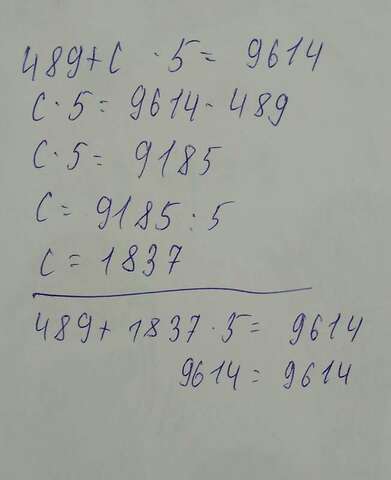 489+C · 5 = 9614
C · 5 = 9614 - 489
C · 5 = 9185
C = 9185 : 5
C = 1837
489 + 1837 · 5 = 9614
9614 = 9614